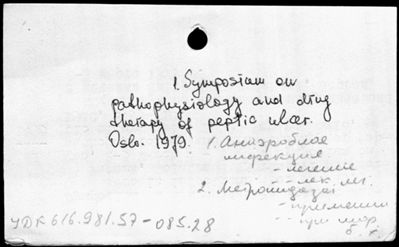 1. Symposium on
pathophysiology and drug
therapy of peptic ulcer.
Oslo. 1979.
1. Анаэробная
инфекция
- лечение
- лек. ..
2. Метронидазол
- применение
- при
УДК 616.981.57-085.28